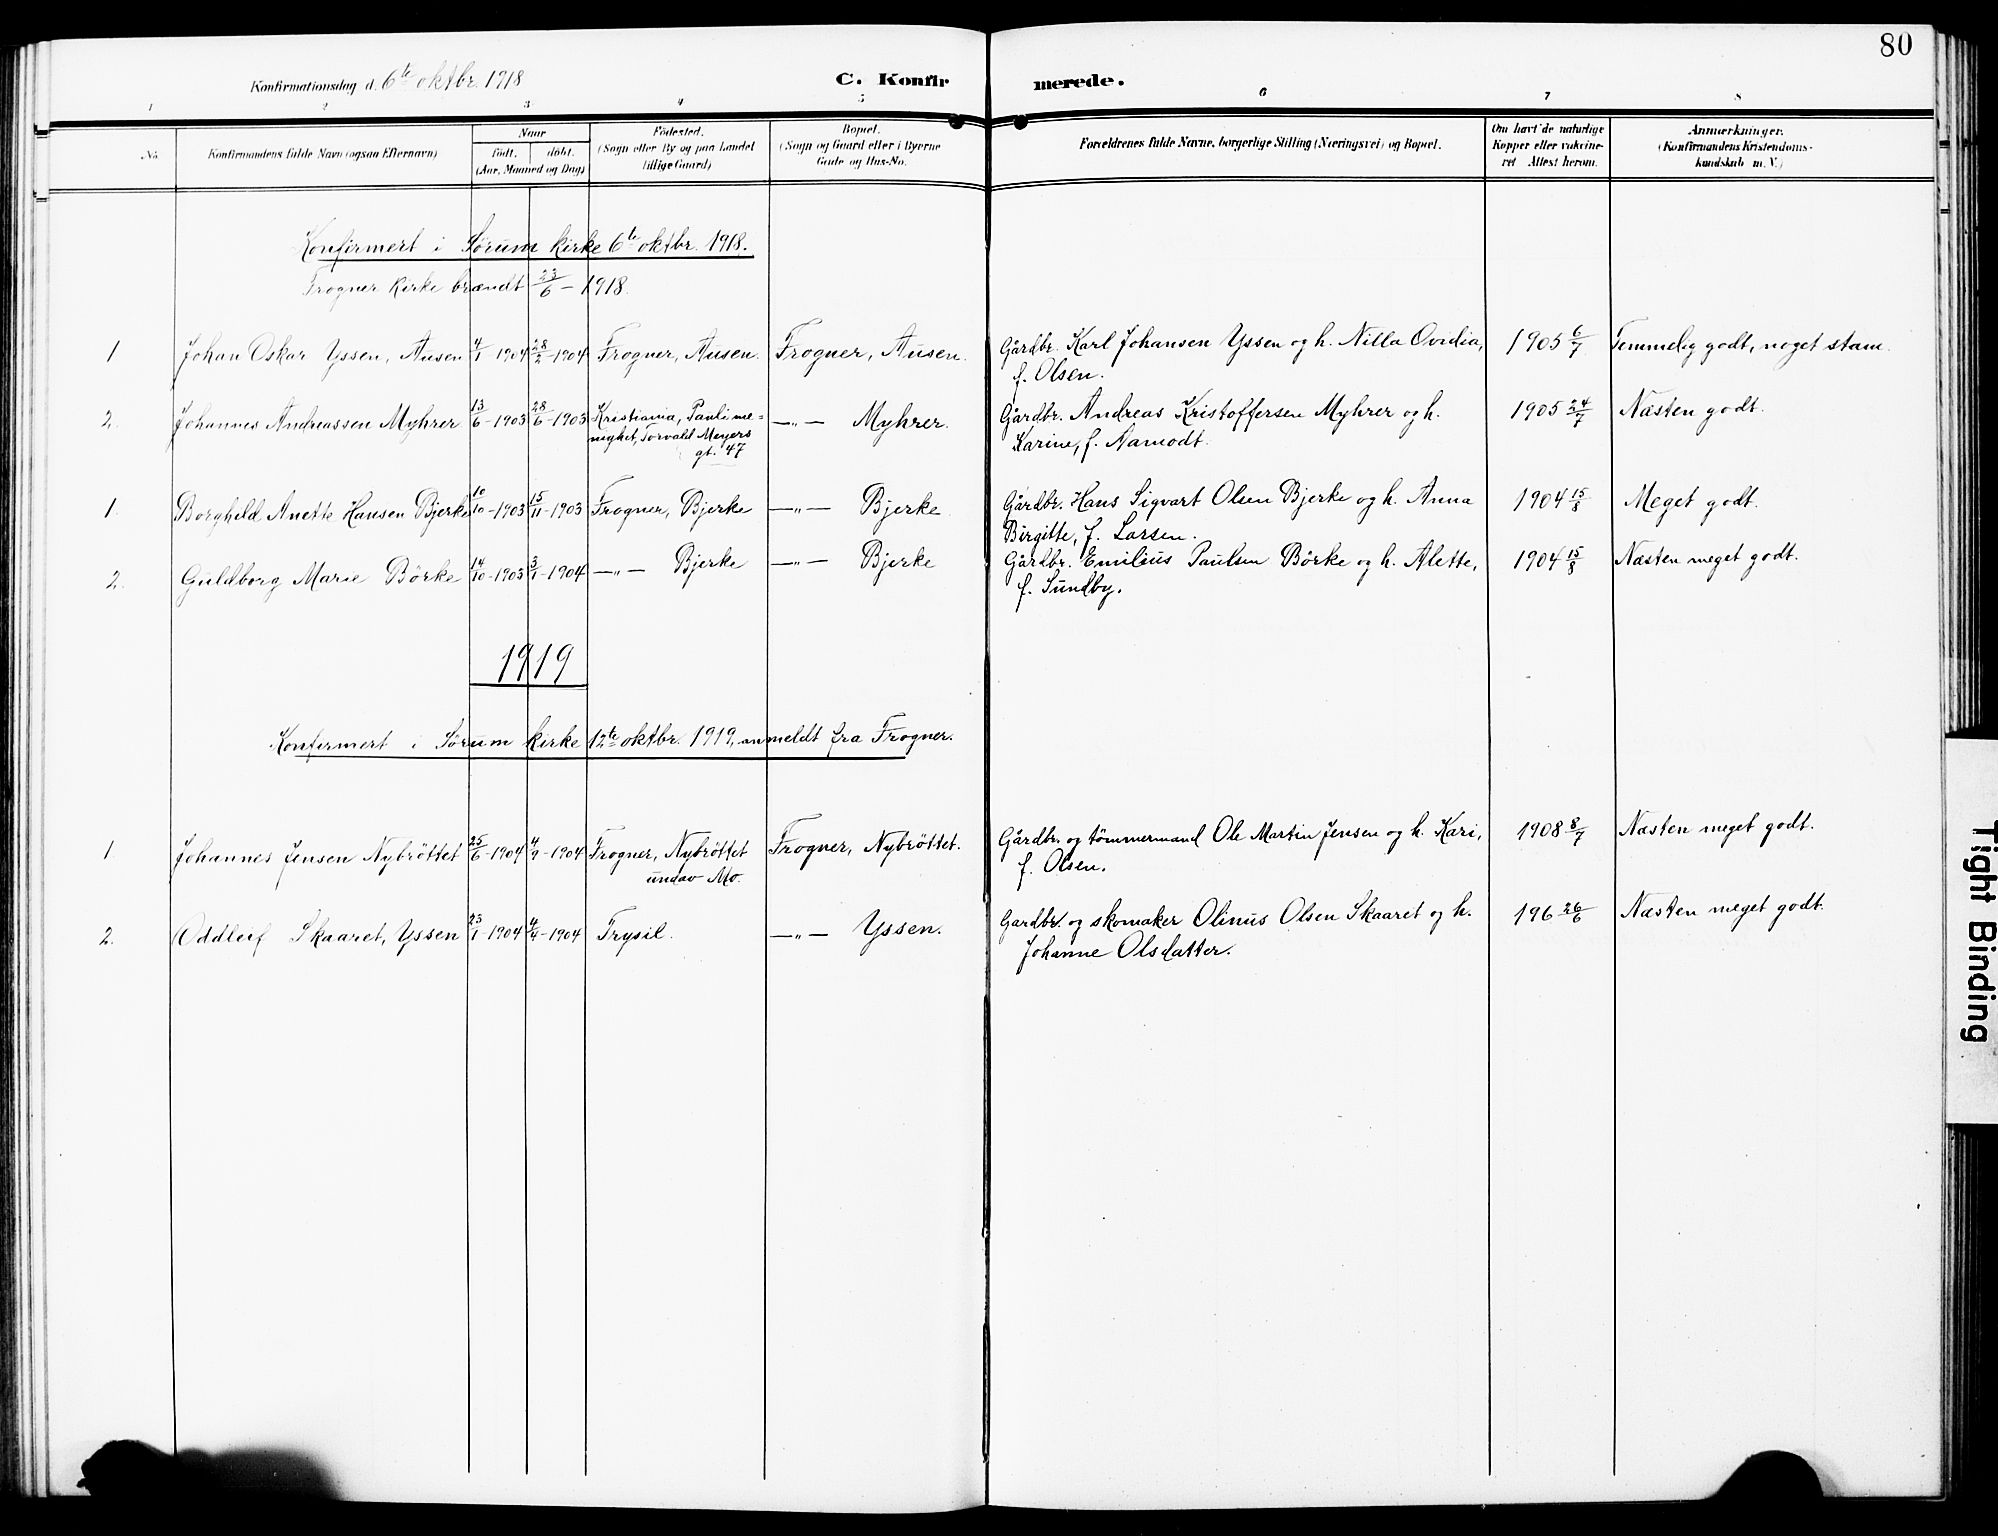 80
Konfirmationsdag d. 6te oktbr. 1918
C. Konfirmerede.
1 2 3 4 5 6 7 8
No.
Konfirmandens fulde Navn (ogsaa Efternavn)
Naar
født. døbt.
(Aar, Maaned og Dag)
Fødested.
(Sogn eller By og paa Landet
tillige Gaard)
Bopæl.
(Sogn og Gaard eller i Byerne
Gade og Hus-No.
Forældrenes fulde Navne, borgerlige Stilling (Næringsvei) og Bopæl.
Om havt de naturlige
Kopper eller vakcine-
ret Attest herom.
Anmærkninger.
(Konfirmandens Kristendoms-
kundskab m. V.)
Konfirmert i Sørum kirke 6te oktbr. 1918.
Frogner kirke brændt 23/6 - 1918.
1 Johan Oskar Yssen, Ausen 4/1 - 1904 28/2 - 1904 Frogner, Ausen. Frogner, Ausen. Gårdbr. Karl Johansen Yssen og h. Nilla Ovidia, 1905 6/7 Temmelig godt, noget stam.
f. Olsen.
2. Johannes Andreassen Myhrer 13/6 - 1903 28/6 - 1903 Kristiania, Pauli me- —„— Myhrer. Gårdbr. Andreas Kristoffersen Myhrer og h. 1905 24/7 Næsten godt.
nighet, Torvald Meyers Karine, f. Namodt.
gt. 47
1. Borghild Anette Hansen Bjerke 10/10 - 1903 15/11 - 1903 Frogner, Bjerke —„— Bjerke Gårdbr. Hans Sigvart Olsen Bjerke og h. Anna 1904 15/8 Meget godt.
Birgitte, f. Larsen.
2. Guldborg Marie Börke 14/10 - 1903 3/1 - 1904 —„— Bjerke —„— Bjerke Gårdbr. Emilius Paulsen Börke og h. Alette, 1904 15/8 Næsten meget godt.
f. Sundby.
1919
Konfirmert i Sørum kirke 12te oktbr. 1919, anmeldt fra Frogner.
1. Johannes Jensen Nybröttet 25/6 - 1904 4/9 - 1904 Frogner, Nybröttet Frogner, Nybröttet. Gårdbr. og tømmermand Ole Martin Jensen og h. Kari, 1908 8/7 Næsten meget godt.
undav Mo. f. Olsen.
2. Oddleif Skaaret, Yssen 23/1 - 1904 4/4 - 1904 Trysil. —„— Yssen. Gardbr. og skomaker Olinus Olsen Skaaret og h. 196 26/6 Næsten meget godt.
Johanne Olsdatter.
Tight Binding